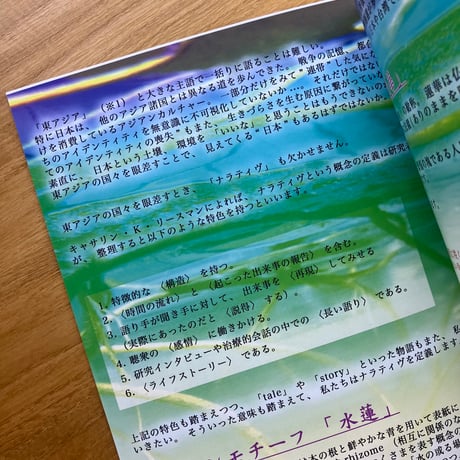 「東アジア」（※1）と大きな主語で一括りに語ることは難しい。
特に日本は、他のアジア諸国とは異なる道を歩んできた。戦争の記憶、都合
けを消費しているアジアンカルチャー、一部分だけをみて“連帯”した気にな
ちのアイデンティティを無意識に不可視化していないか…。それだけではない
てのアイデンティティの喪失”もまた、生きづらさを生む原因に繋がっていな
素直に、日本という土壌、環境を「いいな」と思うこともできないのか
東アジアの国々を眼差すことで、見えてくる“日本”もあるはずではないか。
東アジアの国々を眼差すとき、「ナラティヴ」も欠かせません。
キャサリン・K・リースマンによれば、ナラティヴという概念の定義は研究
が、整理すると以下のような特色を持つといいます。
1. 特徴的な〈構造〉を持つ。
2.〈時間の流れ〉と〈起こった出来事の報告〉を含む。
3. 語り手が聞き手に対して、出来事を〈再現〉してみせる
（実際にあったのだと〈説得〉する）。
4. 聴衆の〈感情〉に働きかける。
5. 研究インタビューや治療的会話の中での〈長い語り〉である。
6.〈ライフストーリー〉である。
上記の特色も踏まえつつ、「tale」や「story」といった物語もまた、私
いきたい。そういった意味も踏まえて、私たちはナラティヴを定義します
モチーフ「水蓮」
の根と鮮やかな青を用いて表紙に
rhizome（相互に関係のな
くさまを表す概念
「水の或る場
蓮華は仏
ありのままを
である人